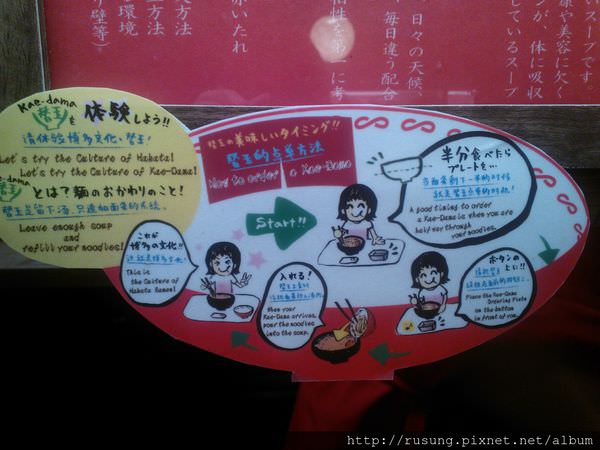 いスープです。
康や美容に欠く
ンが、体に吸収
しているスープ
日々の天候、
毎日違う配合
性を第一に考
赤いたれ
方法
環境
方法
り壁等）
Kae-dama
替玉を体験しよう!!
請体验博多文化、替玉!
Let's try the Culture of Hakata!
Let's try the Culture of Kae-Dama!
替玉とは?麺のおかわりのこと!
Leave enough soup
and
refill your noodles!
替玉の美味しいタイミング!!
替玉的点单方法
How to order a Kae-Dama
Start!!
半分食べたら
プレートを…
A good timing to order
a Kae-Dama is when you are
half way through
your noodles.
ボタンの
上に!!
Place the Kae-Dama
Ordering Plate
on the button
in front of you.
入れる!
When your
Kae-Dama arrives,
pour the noodles
into the soup.
これが
博多の文化!!
This is
the Culture of
Hakata Ramen!
http://rusung.pixnet.net/album